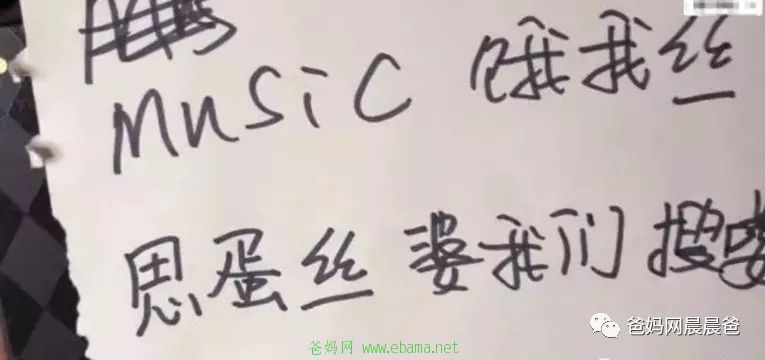 MuSiC 哦我丝
恩蛋丝 婆我们 搜
爸妈网 www.ebama.net
爸妈网晨晨爸